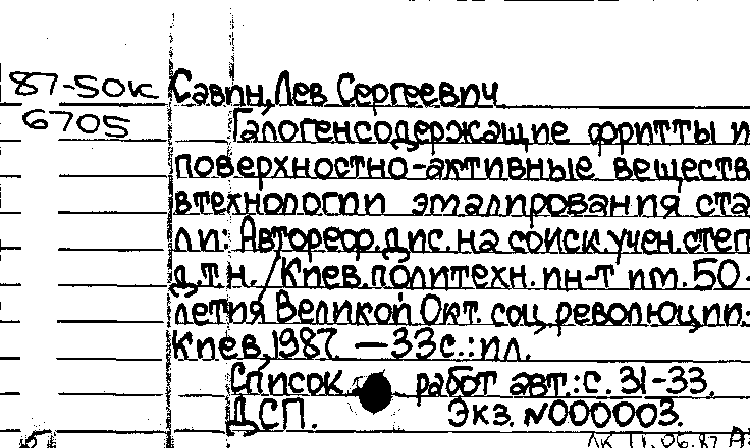 87-50к Савин, Лев Сергеевич
6705 Галогенсодержащие фритты и
поверхностно-активные веществ
в технологии эмалирования ста
ли: Автореф. дис. на соиск. учен. степ
д.т.н. / Киев. политехн. ин-т им. 50-
летия Великой Окт. соц. революции.
Киев, 1987. — 33 с.: ил.
Список работ авт.: с. 31-33.
ДСП. Экз. N000003.
11.06.87